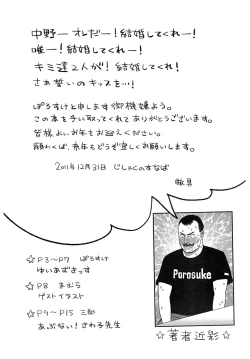 中野ー オレだー！結婚してくれー！
唯ー！結婚してくれー！
キミ達2人が！結婚してくれ！
さぁ誓いのキッスを…！
ぽろすけと申します御機嫌よう。
この本を手に取ってくれてありがとうございます。
皆様よいお年をお迎えください。
願わくば、来年もどうぞ宜しくお願いします。
2011年12月31日 じしゃくのすなば
敬具
☆P3〜P7 ぽろすけ
ゆいあずきっす
☆P8 まむら
ゲストイラスト
☆P9〜P15 三郎
あぶない！さわ子先生
Porosuke
☆著者近影☆